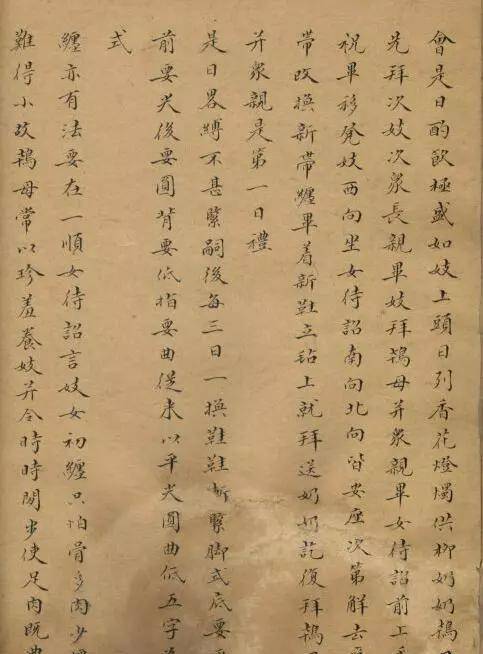 會是日酌飲極盛如妓上頭日列香花燈燭供柳奶奶鴇
先拜次妓次眾長親畢妓拜鴇母并眾親畢女侍詔前上
祝畢移凳妓西向坐女侍詔南向北向皆安座次第解去
帶改換新帶纏畢着新鞋立毡上就拜送奶奶訖復拜鴇
并眾親是第一日禮
是日畧縛不甚緊嗣後每三日一換鞋鞋漸緊脚式底要
前要尖後要圓背要低指要曲從來以平尖圓曲低五字
式
纏亦有法要在一順女侍詔言妓女初纏只怕骨多肉少
難得小故鴇母常以珍羞養妓并令時時閒步使足肉既